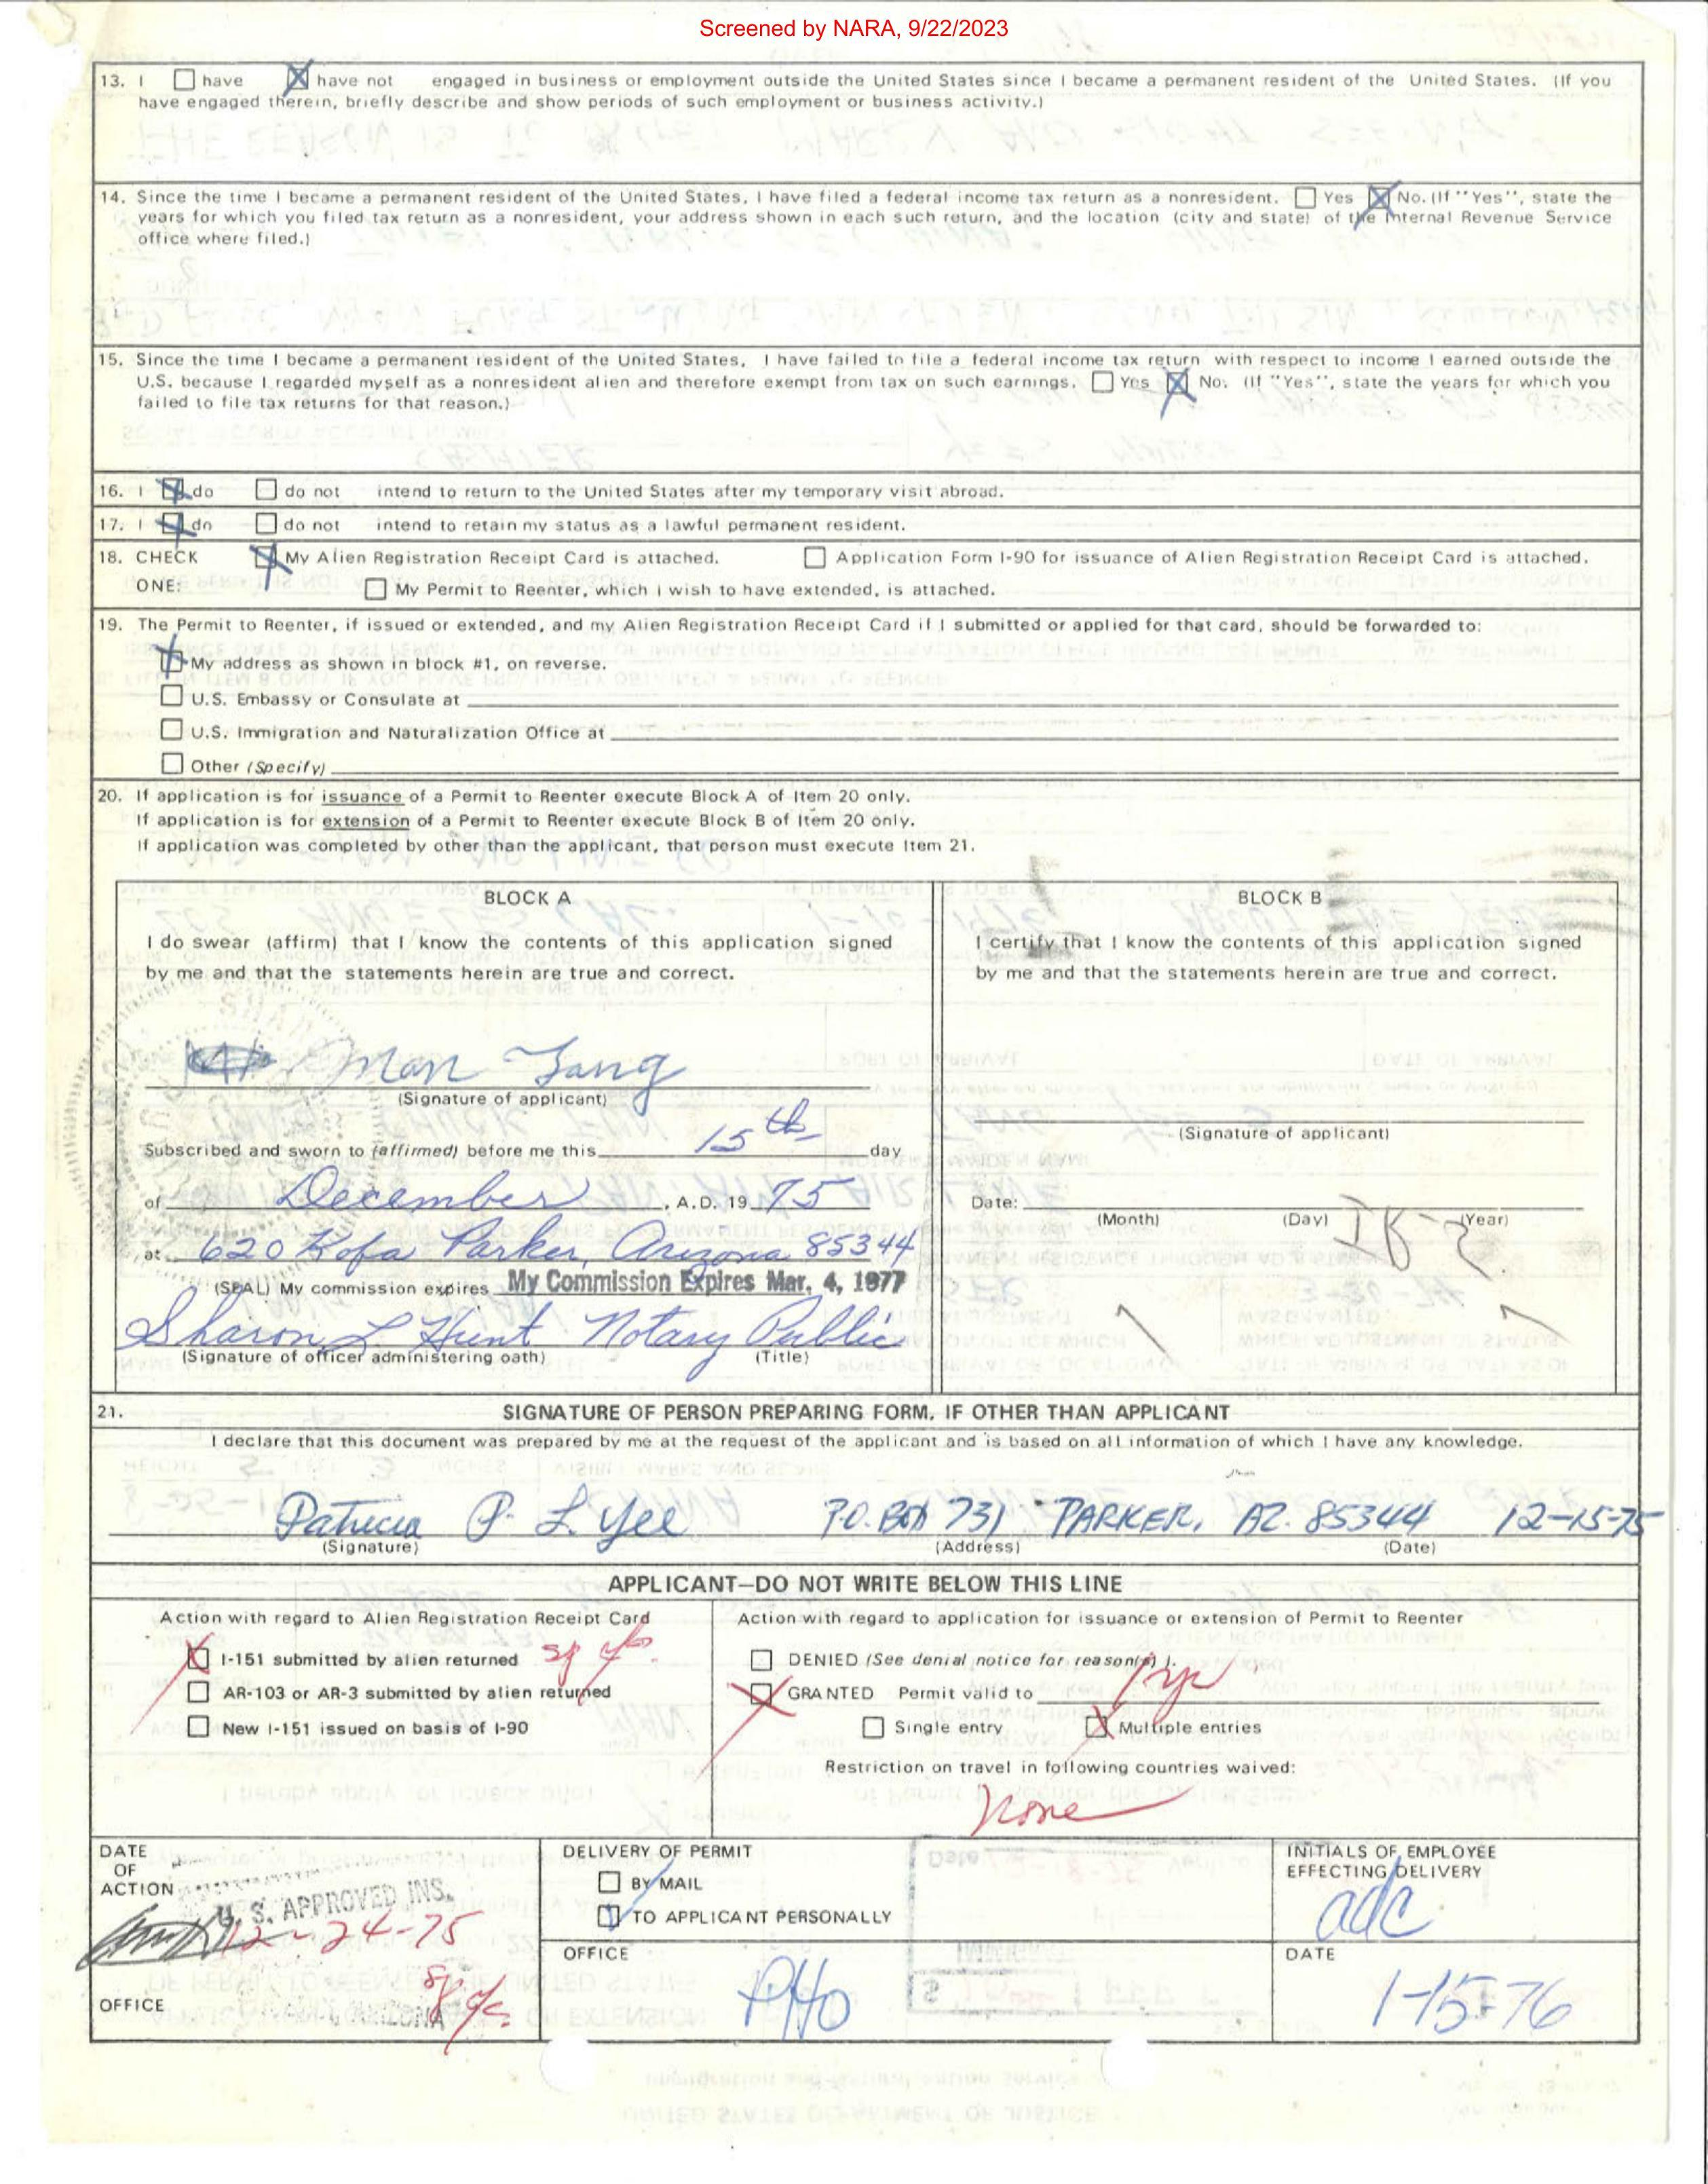 Screened by NARA, 9/22/2023
13. I ☐ have ☒ have not engaged in business or employment outside the United States since I became a permanent resident of the United States. (If you
have engaged therein, briefly describe and show periods of such employment or business activity.)
14. Since the time I became a permanent resident of the United States, I have filed a federal income tax return as a nonresident. ☐ Yes ☒ No. (If "Yes", state the
years for which you filed tax return as a nonresident, your address shown in each such return, and the location (city and state) of the Internal Revenue Service
office where filed.)
15. Since the time I became a permanent resident of the United States, I have failed to file a federal income tax return with respect to income I earned outside the
U.S. because I regarded myself as a nonresident alien and therefore exempt from tax on such earnings. ☐ Yes ☒ No. (If "Yes", state the years for which you
failed to file tax returns for that reason.)
16. I ☒ do ☐ do not intend to return to the United States after my temporary visit abroad.
17. I ☒ do ☐ do not intend to retain my status as a lawful permanent resident.
18. CHECK ☒ My Alien Registration Receipt Card is attached. ☐ Application Form I-90 for issuance of Alien Registration Receipt Card is attached.
ONE: ☐ My Permit to Reenter, which I wish to have extended, is attached.
19. The Permit to Reenter, if issued or extended, and my Alien Registration Receipt Card if I submitted or applied for that card, should be forwarded to:
☒ My address as shown in block #1, on reverse.
☐ U.S. Embassy or Consulate at
☐ U.S. Immigration and Naturalization Office at
☐ Other (Specify)
20. If application is for issuance of a Permit to Reenter execute Block A of Item 20 only.
If application is for extension of a Permit to Reenter execute Block B of Item 20 only.
If application was completed by other than the applicant, that person must execute Item 21.
BLOCK A
I do swear (affirm) that I know the contents of this application signed
by me and that the statements herein are true and correct.
Man Fang
(Signature of applicant)
Subscribed and sworn to (affirmed) before me this 15th day
of December, A.D. 19 75
at 620 Kofa Parker, Arizona 85344
(SEAL) My commission expires My Commission Expires Mar. 4, 1977
Sharon L Hunt Notary Public
(Signature of officer administering oath) (Title)
BLOCK B
I certify that I know the contents of this application signed
by me and that the statements herein are true and correct.
(Signature of applicant)
Date:
(Month) (Day) (Year)
21. SIGNATURE OF PERSON PREPARING FORM, IF OTHER THAN APPLICANT
I declare that this document was prepared by me at the request of the applicant and is based on all information of which I have any knowledge.
Patricia P. L. Yee P.O. BOX 731 PARKER, AZ. 85344 12-15-75
(Signature) (Address) (Date)
APPLICANT—DO NOT WRITE BELOW THIS LINE
Action with regard to Alien Registration Receipt Card
☒ I-151 submitted by alien returned
☐ AR-103 or AR-3 submitted by alien returned
☐ New I-151 issued on basis of I-90
Action with regard to application for issuance or extension of Permit to Reenter
☐ DENIED (See denial notice for reason(s) ).
☒ GRANTED Permit valid to 1 yr
☐ Single entry ☒ Multiple entries
Restriction on travel in following countries waived:
None
DATE
OF
ACTION
U. S. APPROVED INS.
12-24-75
OFFICE
DELIVERY OF PERMIT
☐ BY MAIL
☑ TO APPLICANT PERSONALLY
OFFICE
PHO
INITIALS OF EMPLOYEE
EFFECTING DELIVERY
adc
DATE
1-15-76